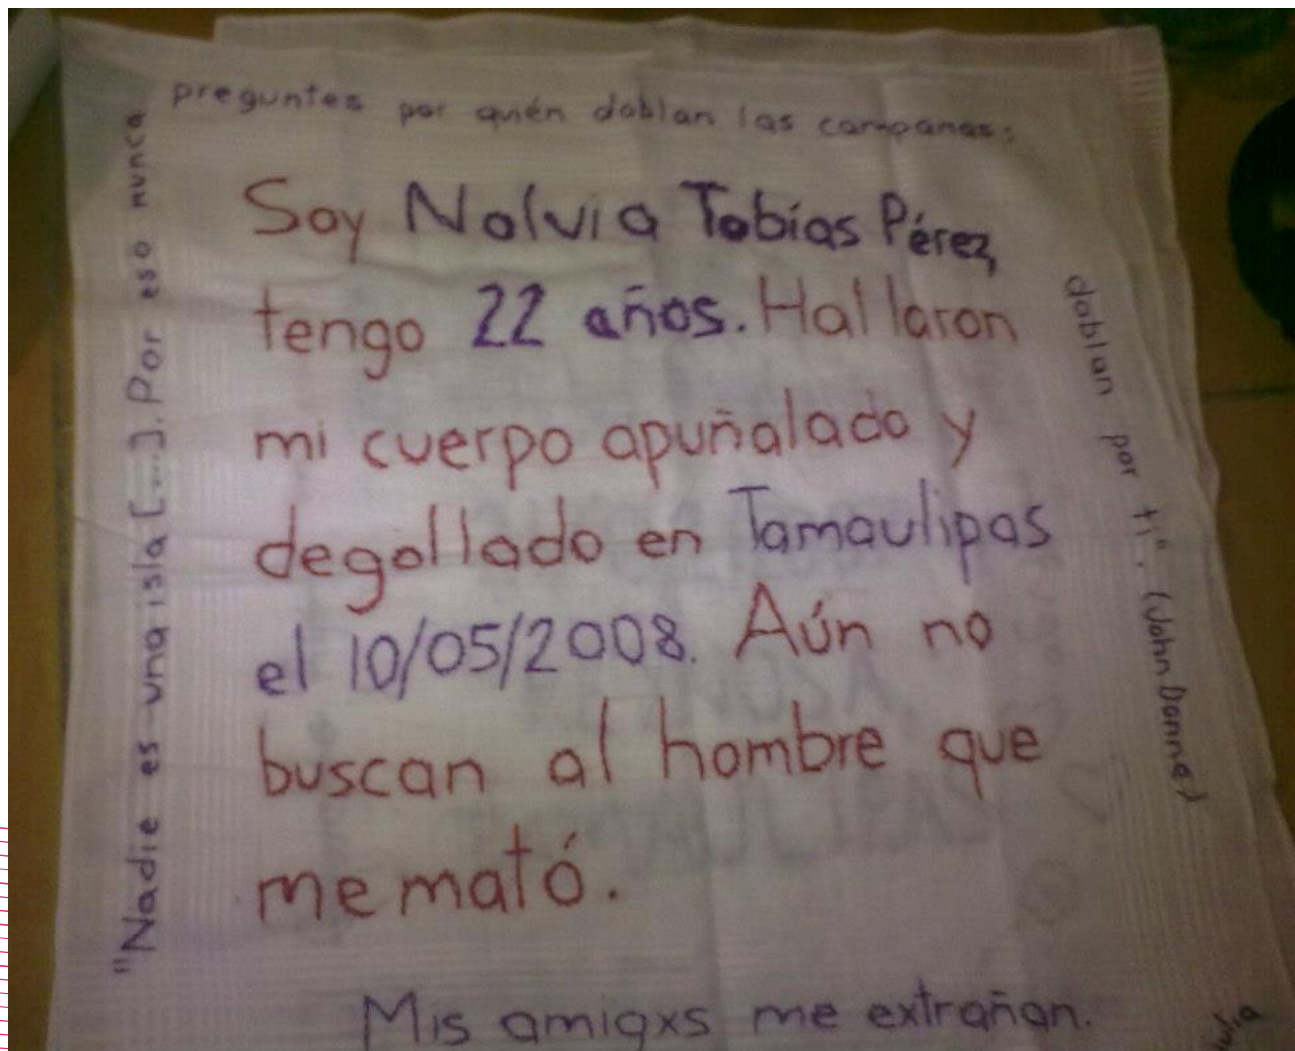 "Nadie es una isla [...]. Por eso nunca
preguntes por quién doblan las campanas:
doblan por ti". (John Donne)
Soy Nolvia Tobías Pérez,
tengo 22 años. Hallaron
mi cuerpo apuñalado y
degollado en Tamaulipas
el 10/05/2008. Aún no
buscan al hombre que
me mató.
Mis amigxs me extrañan.